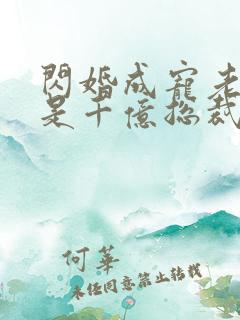 閃婚成寵老
是千億總裁
何華
未經同意禁止轉載